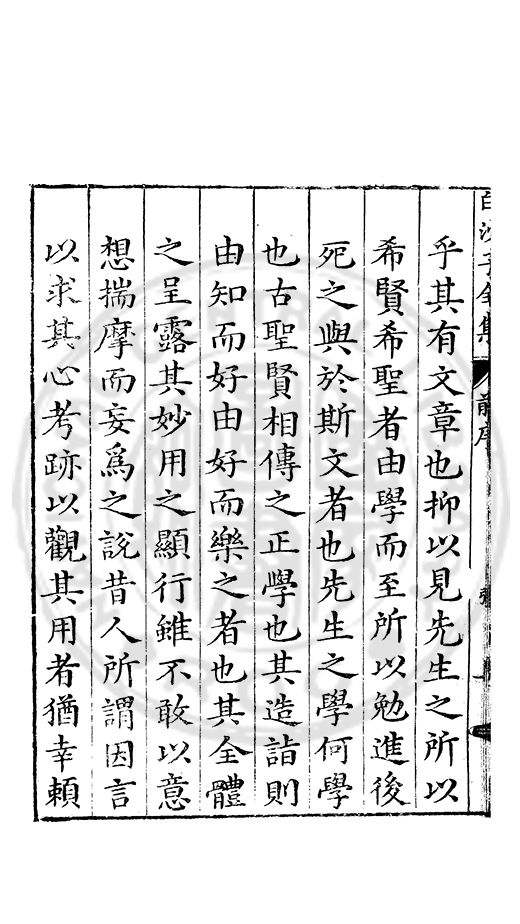 白沙子全集 前序
乎其有文章也抑以見先生之所以
希賢希聖者由學而至所以勉進後
死之與於斯文者也先生之學何學
也古聖賢相傳之正學也其造詣則
由知而好由好而樂之者也其全體
之呈露其妙用之顯行雖不敢以意
想揣摩而妄爲之說昔人所謂因言
以求其心考跡以觀其用者猶幸賴